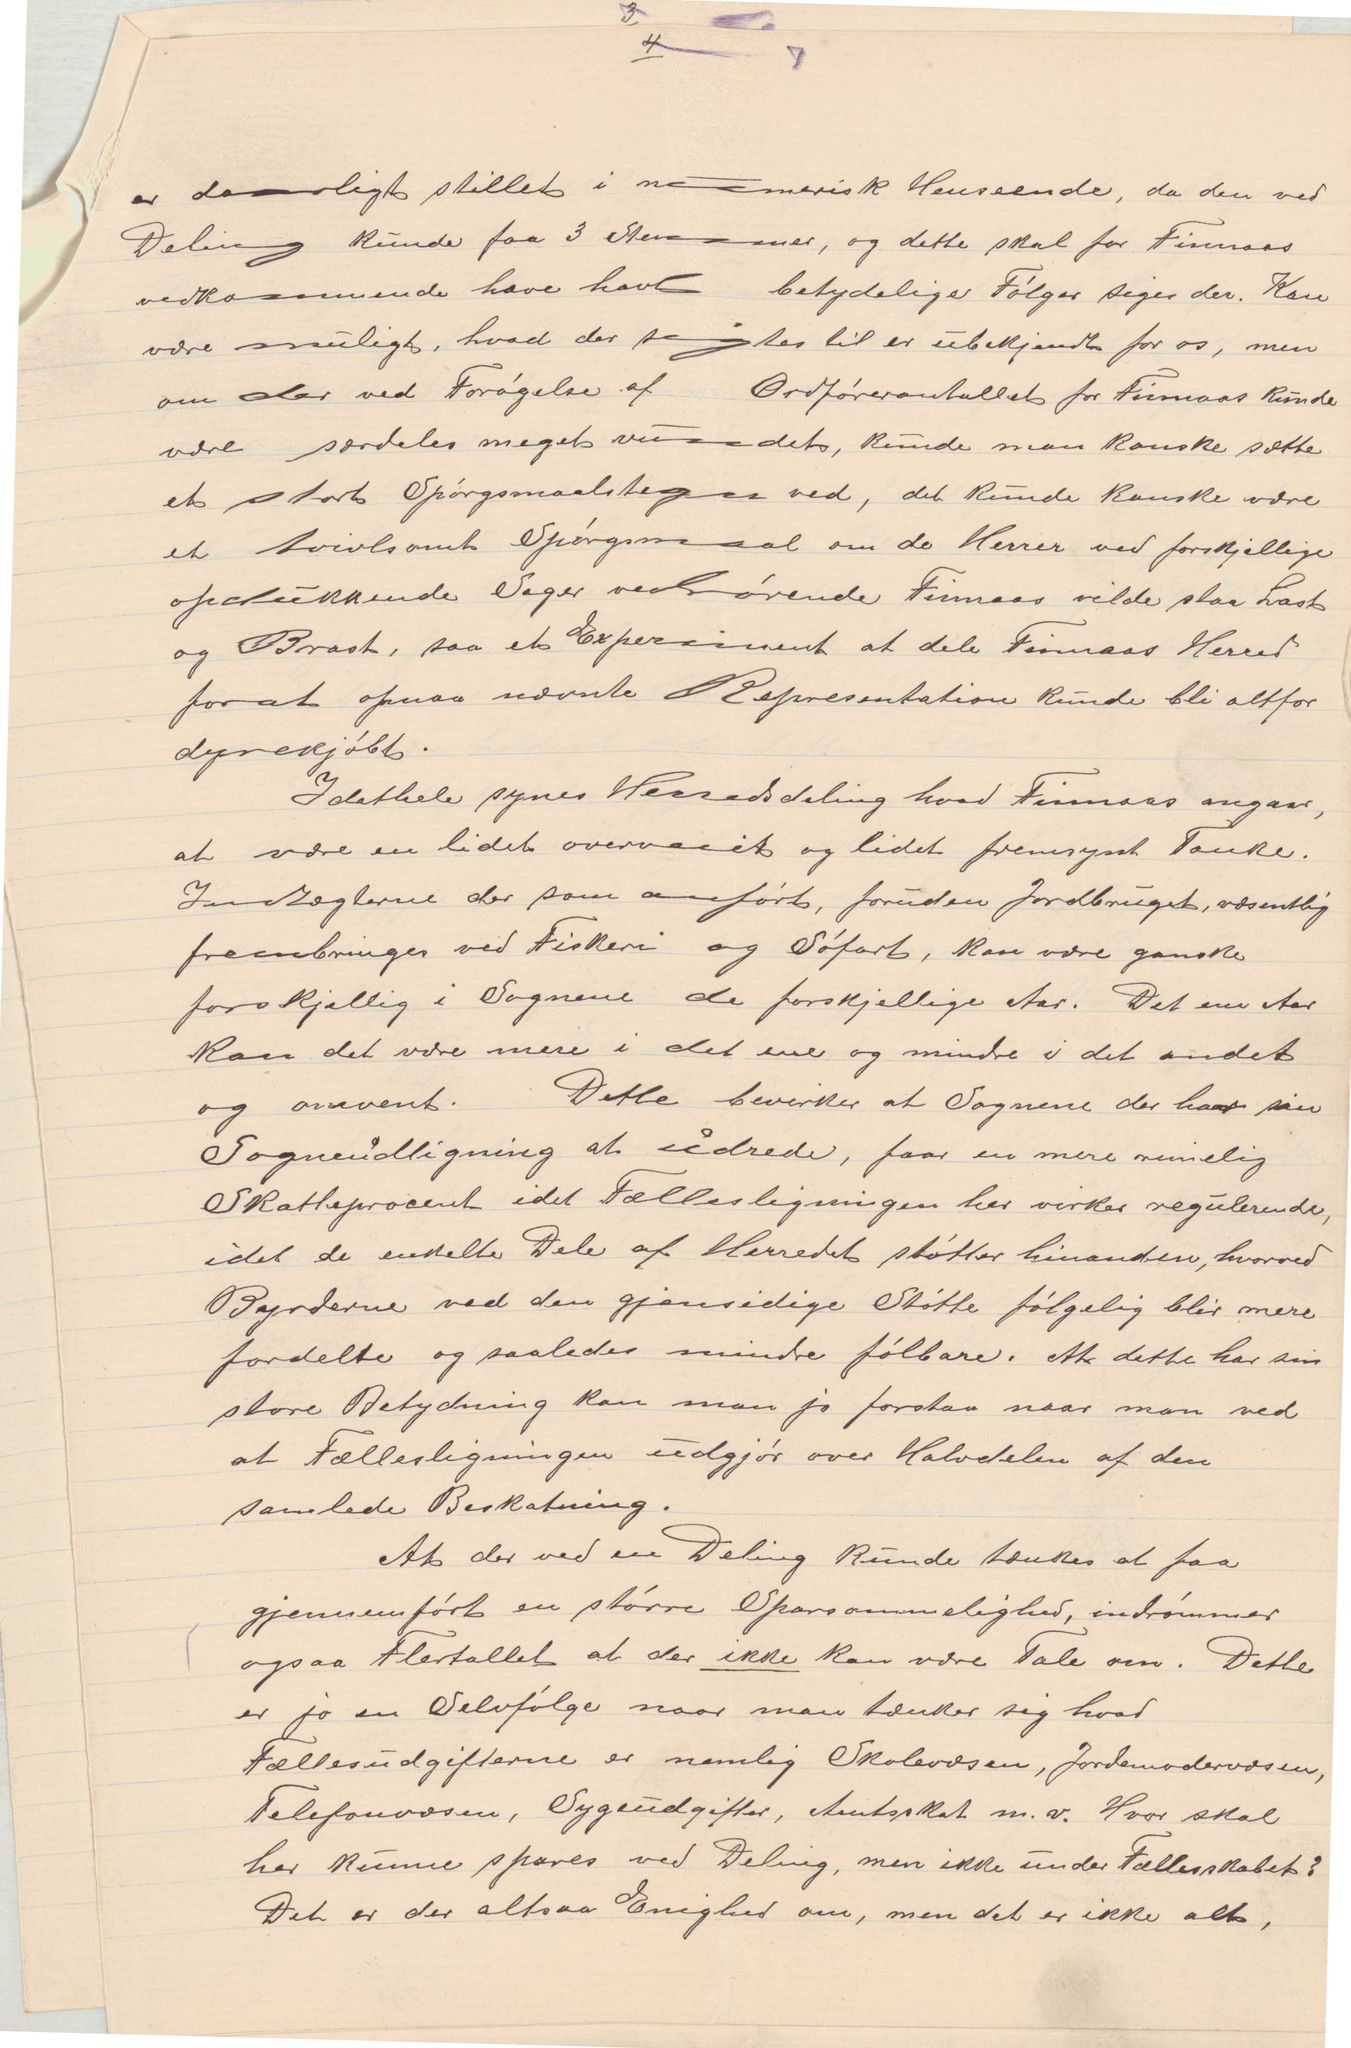 3
4 7
er daarligt stillet i numerisk Henseende, da den ved
Deling kunde faa 3 Stemmer, og dette skal for Finnaas
vedkommende have havt betydelige Følger siges der. Kan
være muligt, hvad der sigtes til er ubekjendt for os, men
om der ved Forøgelse af Ordførerantallet for Finnaas kunde
være særdeles meget vundet, kunde man kanske sætte
et stort Spørgsmaalstegn ved, det kunde kanske være
et tvivlsomt Spørgsmaal om de Herrer ved forskjellige
opdukkende Sager vedhørende Finnaas vilde staa Last
og Brast, saa et Experiment at dele Finnaas Herred
forat opnaa nævnte Representation kunde bli altfor
dyrekjøbt.
Idethele synes Herredsdeling hvad Finnaas angaar,
at være en lidet overveiet og lidet fremsynt Tanke.
Indtægterne der som anført, foruden Jordbruget, væsentlig
frembringes ved Fiskeri og Søfart, kan være ganske
forskjellig i Sognene de forskjellige Aar. Det ene Aar
kan det være mere i det ene og mindre i det andet
og omvent. Dette bevirker at Sognene der har sin
Sogneudligning at udrede, faar en mere rimelig
Skatteprocent idet Fællesligningen her virker regulerende,
idet de enkelte Dele af Herredet støtter hinanden, hvorved
Byrderne ved den gjensidige Støtte følgelig blir mere
fordelte og saaledes mindre følbare. At dette har sin
store Betydning kan man jo forstaa naar man ved
at Fællesligningen udgjør over Halvdelen af den
samlede Beskatning.
At der ved en Deling kunde tænkes at faa
gjennemført en større Sparsommelighed, indrømmer
ogsaa Flertallet at der ikke kan være Tale om. Dette
er jo en Selvfølge naar man tænker sig hvad
Fællesudgifterne er nemlig Skolevæsen, Jordemodervæsen,
Telefonvæsen, Sygeudgifter, Amtsskat m. v. Hvor skal
her kunne spares ved Deling, men ikke under Fællesskabet?
Det er der altsaa Enighed om, men det er ikke alt,